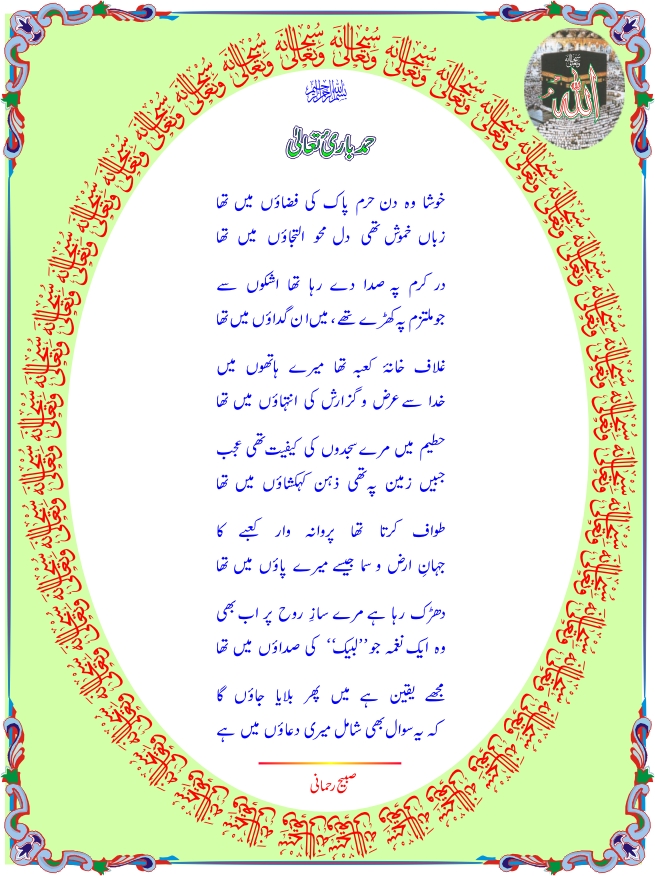 بسم اللہ الرحمن الرحیم
اللہ
حمد باریٔ تعالیٰ
خوشا وہ دن حرم پاک کی فضاؤں میں تھا
زباں خموش تھی دل محو التجاؤں میں تھا
در کرم پہ صدا دے رہا تھا اشکوں سے
جو ملتزم پہ کھڑے تھے، میں ان گداؤں میں تھا
غلاف خانۂ کعبہ تھا میرے ہاتھوں میں
خدا سے عرض و گزارش کی انتہاؤں میں تھا
حطیم میں مرے سجدوں کی کیفیت تھی عجب
جبیں زمین پہ تھی ذہن کہکشاؤں میں تھا
طواف کرتا تھا پروانہ وار کعبے کا
جہانِ ارض و سما جیسے میرے پاؤں میں تھا
دھڑک رہا ہے مرے سازِ روح پر اب بھی
وہ ایک نغمہ جو ’’لبیک‘‘ کی صداؤں میں تھا
مجھے یقین ہے میں پھر بلایا جاؤں گا
کہ یہ سوال بھی شامل میری دعاؤں میں ہے
صبیح رحمانی
سبحانه وتعالى